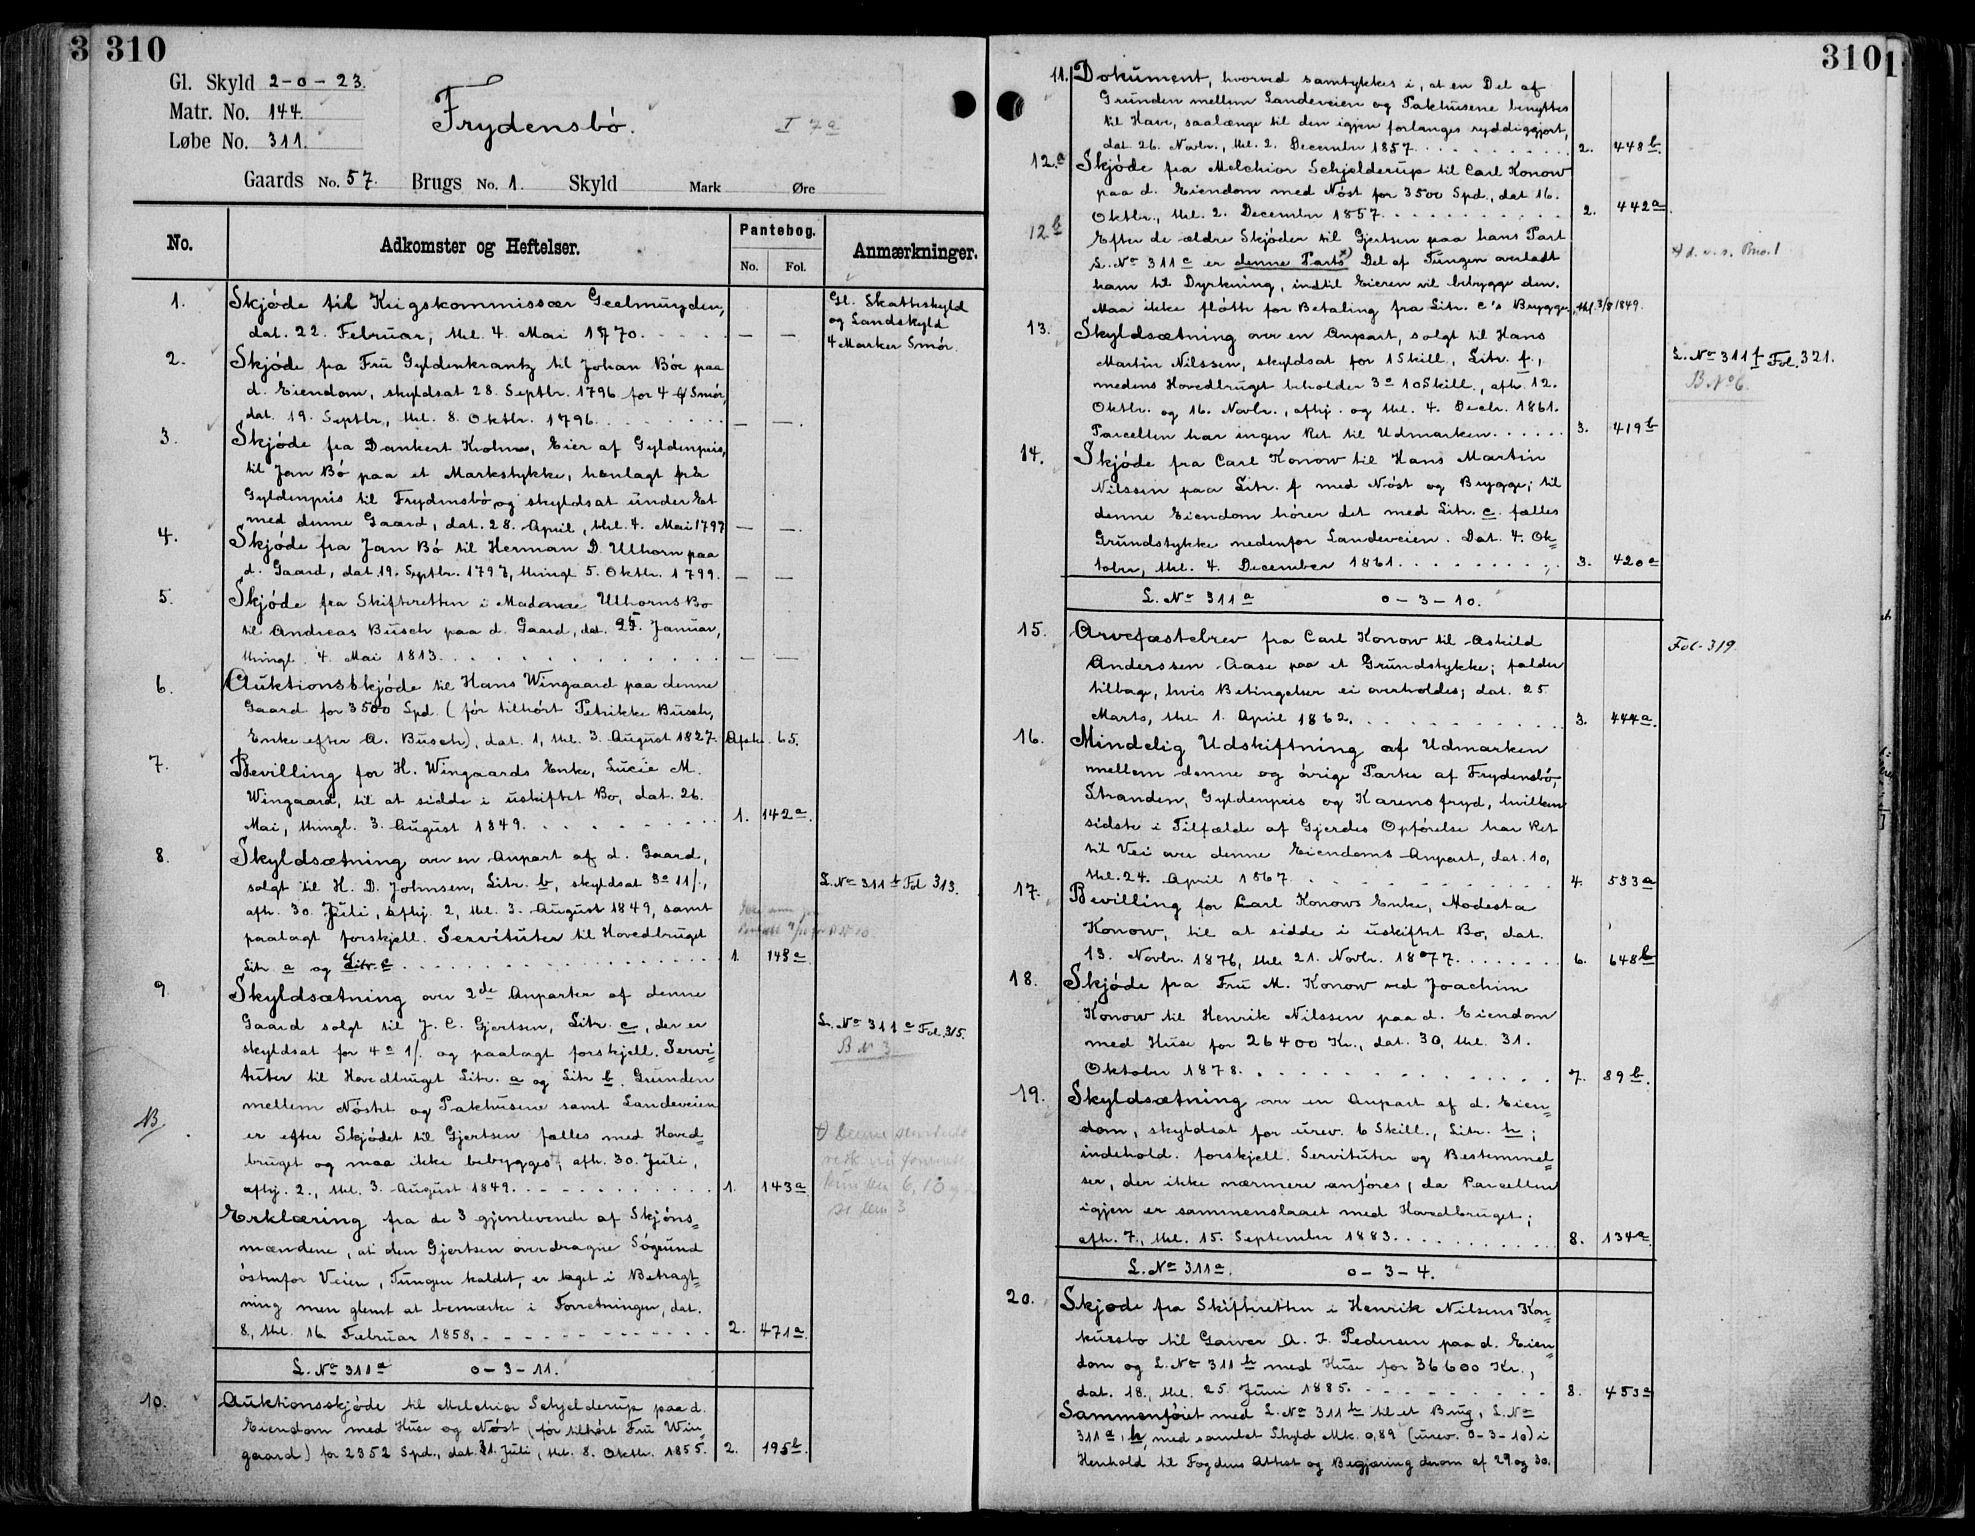 3 310
Gl. Skyld 2-0-23.
Matr. No. 144.
Løbe No. 311.
Frydensbö.
I 7a
Gaards No. 57. Brugs No. 1. Skyld Mark Øre
No.
Adkomster og Heftelser.
Pantebog.
No. Fol.
Anmærkninger.
1. Skjöde til Krigskommissær Geelmuyden,
dat. 22. Februar, thl. 4. Mai 1770. — —
Gl. Skatteskyld
og Landskyld
4 Marker Smör.
2. Skjöde fra Fru Gyldenkrantz til Johan Böe paa
d. Eiendom, skyldsat 28. Septbr. 1796 for 4 Smör,
dat. 19. Septbr., thl. 8. Oktbr. 1796. — —
3. Skjöde fra Dankert Krohn, Eier af Gyldenpris,
til Jan Bö paa et Markstykke, henlagt fra
Gyldenpris til Frydensbö og skyldsat under Et
med denne Gaard, dat. 28. April, thl. 4. Mai 1797 — —
4. Skjöde fra Jan Bö til Herman D. Ulhorn paa
d. Gaard, dat. 19. Septbr. 1797, thingl. 5. Oktbr. 1799. — —
5. Skjöde fra Skifteretten i Madame Ulhorns Bo
til Andreas Busch paa d. Gaard, dat. 25. Januar,
thingl. 4. Mai 1813. — —
6. Auktionsskjöde til Hans Wingaard paa denne
Gaard for 3500 Spd. (för tilhört Petrikke Busch,
Enke efter A. Busch), dat. 1, thl. 3. August 1827. Afskr. 65.
7. Bevilling for H. Wingaards Enke, Lucie M.
Wingaard, til at sidde i uskiftet Bo, dat. 26.
Mai, thingl. 3. August 1849. 1. 142a.
8. Skyldsætning over en Anpart af d. Gaard,
solgt til H. D. Johnsen, Litr. b, skyldsat 3o 11/.,
L. No 311 b Fol 313.
afh. 30. Juli, afhj. 2, thl. 3. August 1849, samt
paalagt forskjell. Servituter til Hovedbruget
Litr a og Litr. c. 1. 148a.
9. Skyldsætning over 2de Anparter af denne
Gaard solgt til J. C. Gjertsen, Litr. c, der er
L. No 311 c Fol. 315.
B N 3
skyldsat for 4o 1/. og paalagt forskjell. Servi=
tuter til Hovedbruget Litr. a og Litr b. Grunden
mellem Nöstet og Pakhusene samt Landeveien
NB. er efter Skjödet til Gjertsen fælles med Hoved=
bruget og maa ikke bebygges; afh. 30. Juli,
afhj. 2., thl. 3. August 1849. 1. 143a.
Erklæring fra de 3 gjenlevende af Skjöns=
mændene, at den Gjertsen overdragne Sögrund
östenfor Veien, Tungen kaldet, er taget i Betragt=
ning men glemt at bemærke i Forretningen, dat.
8., thl. 16. Februar 1858. 2. 471a.
L. No 311a 0-3-11.
10. Auktionsskjöde til Melchior Schjelderup paa d.
Eiendom med Huse og Nöst (för tilhört Fru Win=
gaard) for 2352 Spd., dat. 31. Juli, thl. 8. Oktbr. 1855. 2. 195b.
310
11. Dokument, hvorved samtykkes i, at en Del af
Grunden mellem Landeveien og Pakhusene benyttes
til Have, saalænge til den igjen forlanges ryddiggjort,
dat. 26. Novbr., thl. 2. December 1857. 2. 448b.
12.a Skjöde fra Melchior Schjelderup til Carl Konow
paa d. Eiendom med Nöst for 3500 Spd., dat. 16.
Oktbr., thl. 2. December 1857. 2. 442a.
12b Efter de ældre Skjöder til Gjertsen paa hans Part
L. No 311 c er denne Parts Del af Tungen overladt
d. v. s. Bno. 1
ham til Dyrkning, indtil Eieren vil bebygge den.
Maa ikke fløtte for Betaling fra Litr. c's Brygge, thl. 3/8 1849.
13. Skyldsætning over en Anpart, solgt til Hans
Martin Nilssen, skyldsat for 1 Skill., Litr. f.,
L. No 311 f Fol. 321.
B No 6.
medens Hovedbruget beholder 3o 10 Skill., afh. 12.
Oktbr. og 16. Novbr., afhj. og thl. 4. Decbr. 1861.
Parcellen har ingen Ret til Udmarken. 3. 419b
14. Skjöde fra Carl Konow til Hans Martin
Nilssen paa Litr. f med Nöst og Brygge; til
denne Eiendom hörer det med Litr. c. fælles
Grundstykke nedenfor Landeveien. Dat. 4. Ok=
tober, thl. 4. December 1861. 3. 420a
L. No 311a 0-3-10.
15. Arvefæstebrev fra Carl Konow til Askild
Anderssen Aase paa et Grundstykke; falder
Fol. 319.
tilbage, hvis Betingelser ei overholdes; dat. 25
Marts, thl 1. April 1862. 3. 444a.
16. Mindelig Udskiftning af Udmarken
mellem denne og övrige Parter af Frydensbö,
Stranden, Gyldenpris og Karensfryd, hvilken
sidste i Tilfælde af Gjerdes Opförelse har Ret
til Vei over denne Eiendoms Anpart, dat. 10,
thl. 24. April 1867. 4. 533a
17. Bevilling for Carl Konows Enke, Modesta
Konow, til at sidde i uskiftet Bo, dat.
13. Novbr. 1876, thl. 21. Novbr. 1877. 6. 648b
18. Skjöde fra Fru M. Konow ved Joachim
Konow til Henrik Nilssen paa d. Eiendom
med Huse for 26400 Kr., dat. 30, thl. 31.
Oktober 1878. 7. 89b.
19. Skyldsætning over en Anpart af d. Eien=
dom, skyldsat for urev. 6 Skill., Litr. h;
indehold. forskjell. Servituter og Bestemmel=
ser, der ikke nærmere anföres, da Parcellen
igjen er sammenslaaet med Hovedbruget;
afh. 7., thl. 15. September 1883. 8. 134a.
L. No 311a. 0-3-4.
20. Skjöde fra Skifteretten i Henrik Nilsens Kon=
kursbo til Garver A. J. Pedersen paa d. Eien=
dom og L. No 311 h med Huse for 36600 Kr.,
dat. 18., thl. 25. Juni 1885. 8. 453a
Sammenföiet med L. No 311 h til et Brug, L. No
311 a, h, med samlet Skyld Mk. 0,89 (urev. 0-3-10) i
Henhold til Fogdens Attest og Begjæring derom af 29 og 30.